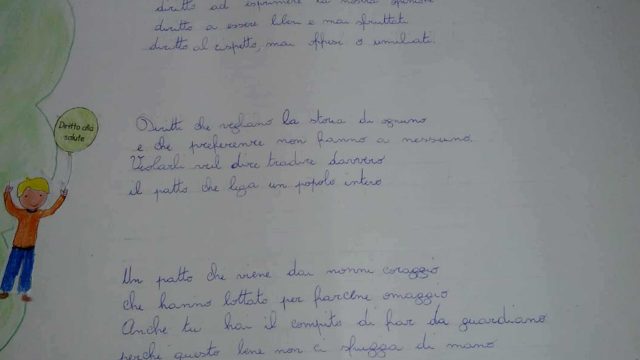 diritto ad esprimere la nostra opinione
diritto a essere liberi e mai sfruttati
diritto al rispetto, mai offesi o umiliati.
Diritto alla
salute
Diritti che vegliano la storia di ognuno
e che preferenze non fanno a nessuno.
Violarli vuol dire tradire davvero
il patto che lega un popolo intero
Un patto che viene dai nonni coraggio
che hanno lottato per farcene omaggio
Anche tu hai il compito di far da guardiano
perché questo bene non ci sfugga di mano